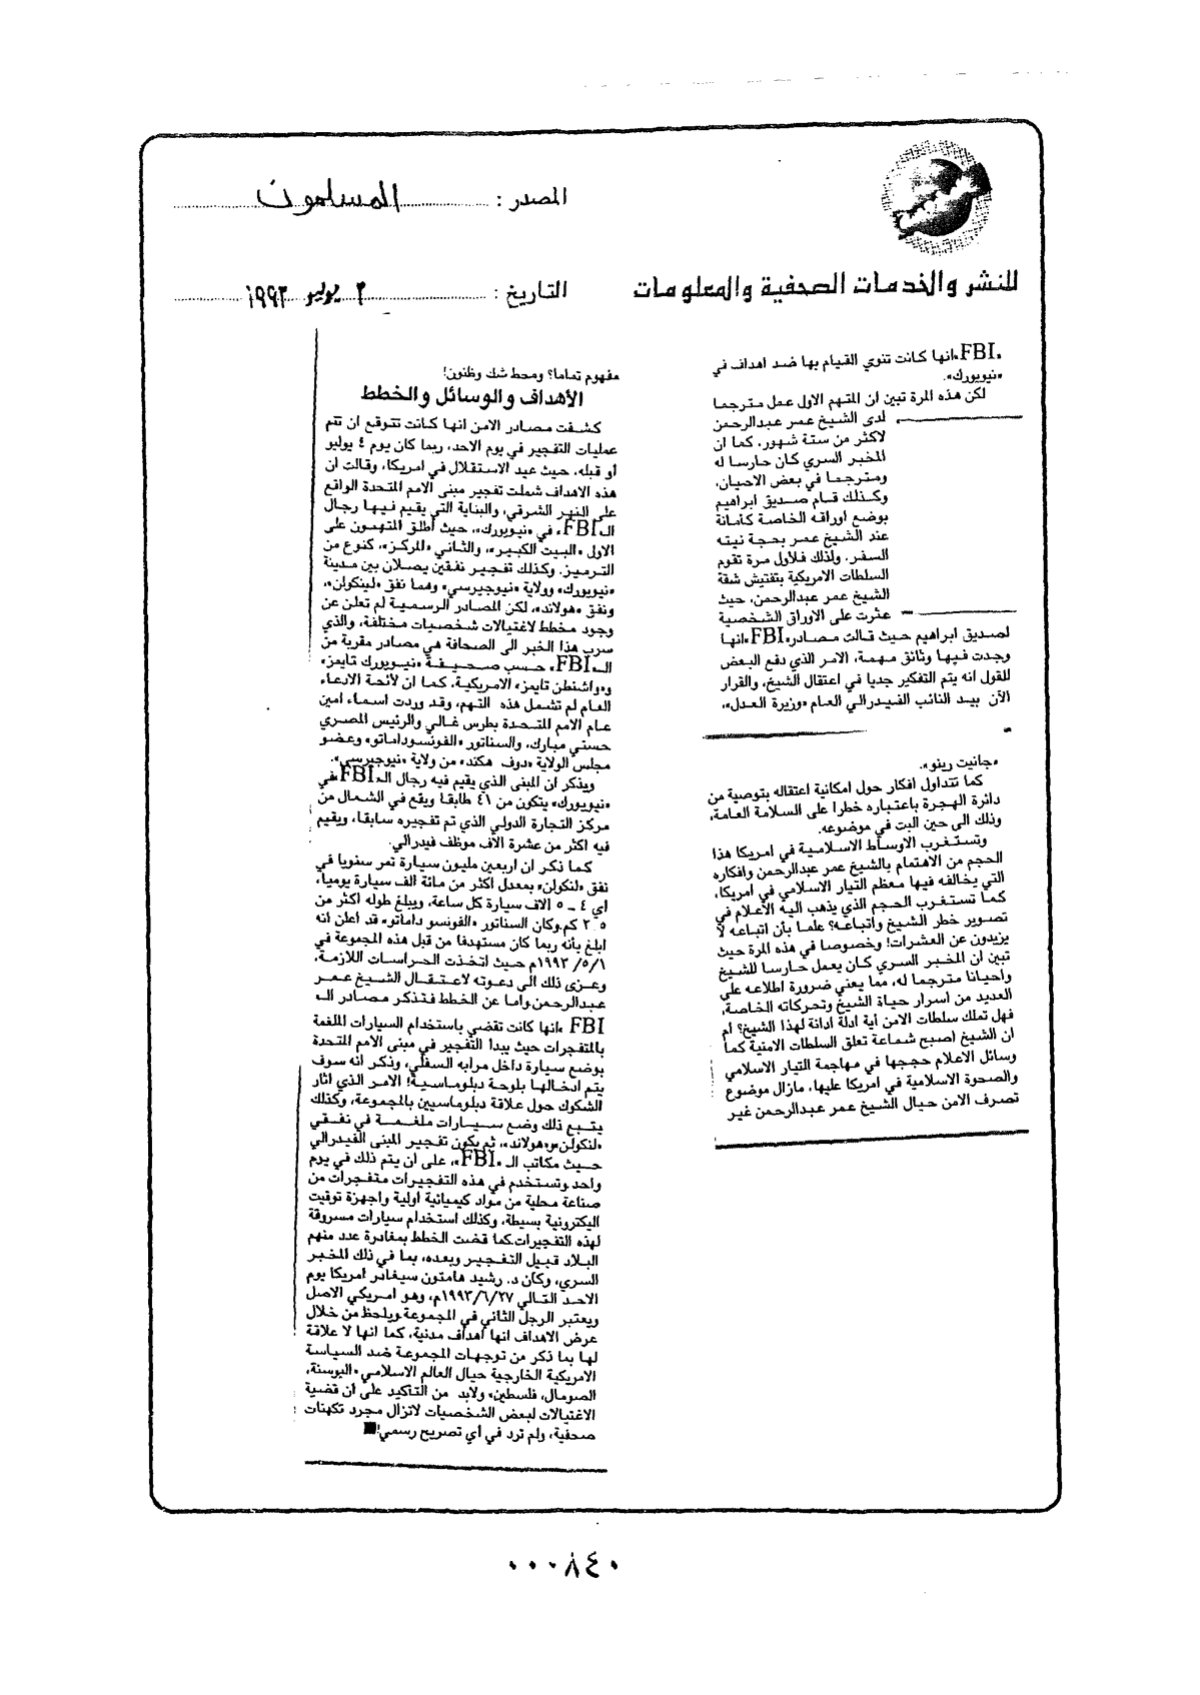 المصدر : المسلمون
للنشر والخدمات الصحفية والمعلومات
التاريخ : ٢ يوليو ١٩٩٣
«FBI» انها كانت تنوي القيام بها ضد اهداف في
«نيويورك».
لكن هذه المرة تبين ان المتهم الاول عمل مترجما
لدى الشيخ عمر عبدالرحمن
لاكثر من ستة شهور، كما ان
المخبر السري كان حارسا له
ومترجما في بعض الاحيان،
وكذلك قام صديق ابراهيم
بوضع اوراقه الخاصة كأمانة
عند الشيخ عمر بحجة نيته
السفر. ولذلك فلاول مرة تقوم
السلطات الامريكية بتفتيش شقة
الشيخ عمر عبدالرحمن، حيث
عثرت على الاوراق الشخصية
لصديق ابراهيم حيث قالت مصادر «FBI» انها
وجدت فيها وثائق مهمة، الامر الذي دفع البعض
للقول انه يتم التفكير جديا في اعتقال الشيخ، والقرار
الآن بيد النائب الفيدرالي العام «وزيرة العدل»،
«جانيت رينو».
كما تتداول افكار حول امكانية اعتقاله بتوصية من
دائرة الهجرة باعتباره خطرا على السلامة العامة،
وذلك الى حين البت في موضوعه.
وتستغرب الاوساط الاسلامية في امريكا هذا
الحجم من الاهتمام بالشيخ عمر عبدالرحمن وافكاره
التي يخالفه فيها معظم التيار الاسلامي في امريكا،
كما تستغرب الحجم الذي يذهب اليه الأعلام في
تصوير خطر الشيخ واتباعه؟ علما بأن اتباعه لا
يزيدون عن العشرات! وخصوصا في هذه المرة حيث
تبين ان المخبر السري كان يعمل حارسا للشيخ
واحيانا مترجما له، مما يعني ضرورة اطلاعه على
العديد من اسرار حياة الشيخ وتحركاته الخاصة،
فهل تملك سلطات الامن أية ادلة ادانة لهذا الشيخ؟ ام
ان الشيخ اصبح شماعة تعلق السلطات الامنية كما
وسائل الاعلام حججها في مهاجمة التيار الاسلامي
والصحوة الاسلامية في امريكا عليها، مازال موضوع
تصرف الامن حيال الشيخ عمر عبدالرحمن غير
مفهوم تماما؟ ومحط شك وظنون!
الأهداف والوسائل والخطط
كشفت مصادر الامن انها كانت تتوقع ان تتم
عمليات التفجير في يوم الاحد، ربما كان يوم ٤ يوليو
او قبله، حيث عيد الاستقلال في امريكا، وقالت ان
هذه الاهداف شملت تفجير مبنى الامم المتحدة الواقع
على النهر الشرقي، والبناية التي يقيم فيها رجال
الـ «FBI» في «نيويورك»، حيث أطلق المتهمون على
الاول «البيت الكبير»، والثاني «المركز»، كنوع من
الترميز. وكذلك تفجير نفقين يصلان بين مدينة
«نيويورك» وولاية «نيوجيرسي» وهما نفق «لينكولن»،
ونفق «هولاند»، لكن المصادر الرسمية لم تعلن عن
وجود مخطط لاغتيالات شخصيات مختلفة، والذي
سرب هذا الخبر الى الصحافة هي مصادر مقربة من
الـ «FBI» حسب صحيفة «نيويورك تايمز»
و«واشنطن تايمز» الامريكية، كما ان لائحة الادعاء
العام لم تشمل هذه التهم، وقد وردت اسماء امين
عام الامم المتحدة بطرس غالي والرئيس المصري
حسني مبارك، والسناتور «الفونسو داماتو» وعضو
مجلس الولاية «دوف هكند» من ولاية «نيوجيرسي».
ويذكر ان المبنى الذي يقيم فيه رجال الـ «FBI» في
«نيويورك» يتكون من ٤١ طابقا ويقع في الشمال من
مركز التجارة الدولي الذي تم تفجيره سابقا، ويقيم
فيه اكثر من عشرة آلاف موظف فيدرالي.
كما ذكر ان اربعين مليون سيارة تمر سنويا في
نفق «لنكولن» بمعدل اكثر من مائة الف سيارة يوميا،
اي ٤ ـ ٥ الاف سيارة كل ساعة، ويبلغ طوله اكثر من
٢.٥ كم. وكان السناتور «الفونسو داماتو» قد اعلن انه
ابلغ بأنه ربما كان مستهدفا من قبل هذه المجموعة في
١/٥/١٩٩٣م حيث اتخذت الحراسات اللازمة،
وعزى ذلك الى دعوته لاعتقال الشيخ عمر
عبدالرحمن. واما عن الخطط فتذكر مصادر الـ
«FBI» انها كانت تقضي باستخدام السيارات الملغمة
بالمتفجرات حيث يبدأ التفجير في مبنى الامم المتحدة
بوضع سيارة داخل مرآبه السفلي، وذكر انه سوف
يتم ادخالها بلوحة دبلوماسية! الامر الذي اثار
الشكوك حول علاقة دبلوماسيين بالمجموعة، وكذلك
يتبع ذلك وضع سيارات ملغمة في نفقي
«لنكولن» و«هولاند»، ثم يكون تفجير المبنى الفيدرالي
حيث مكاتب الـ «FBI»، على ان يتم ذلك في يوم
واحد وتستخدم في هذه التفجيرات متفجرات من
صناعة محلية من مواد كيميائية اولية واجهزة توقيت
اليكترونية بسيطة، وكذلك استخدام سيارات مسروقة
لهذه التفجيرات. كما قضت الخطط بمغادرة عدد منهم
البلاد قبيل التفجير وبعده، بما في ذلك المخبر
السري، وكان د. رشيد هامتون سيغادر امريكا يوم
الاحد التالي ٢٧/٦/١٩٩٣م، وهو امريكي الاصل
ويعتبر الرجل الثاني في المجموعة. ويلحظ من خلال
عرض الاهداف انها اهداف مدنية، كما انها لا علاقة
لها بما ذكر من توجهات المجموعة ضد السياسة
الامريكية الخارجية حيال العالم الاسلامي «البوسنة،
الصومال، فلسطين» ولابد من التأكيد على ان قضية
الاغتيالات لبعض الشخصيات لاتزال مجرد تكهنات
صحفية، ولم ترد في أي تصريح رسمي! ■
٠٠٠٨٤٠